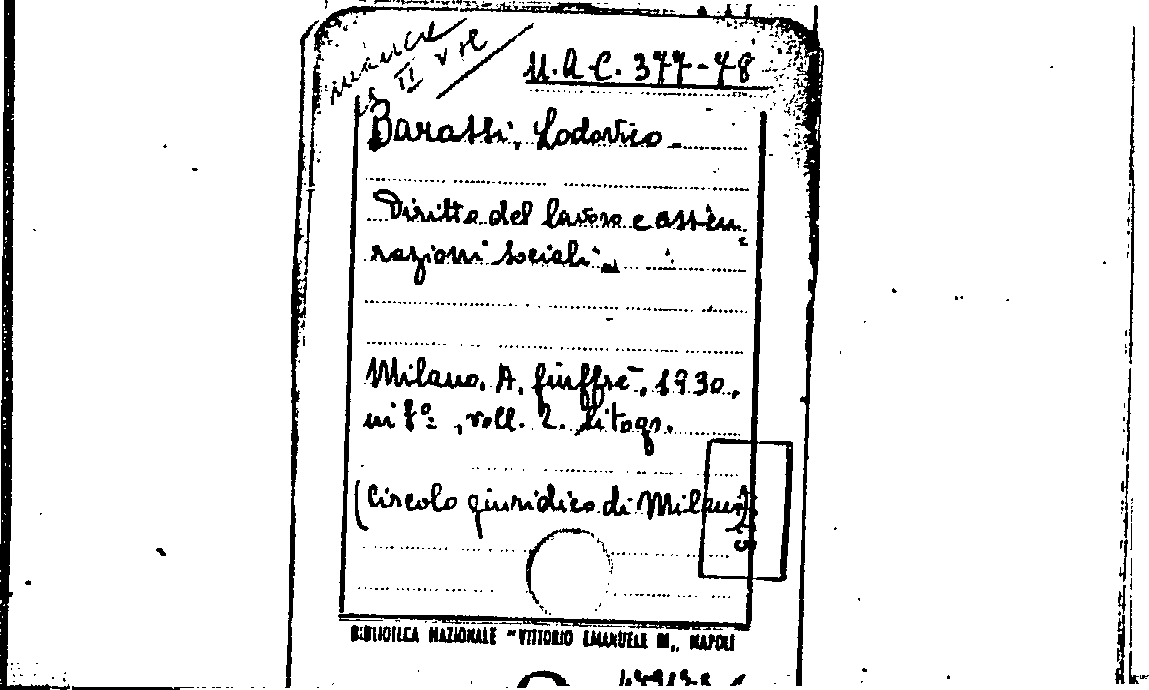 manca
il II vol
M.A.C. 377-48
Barassi, Lodovico.
Diritto del lavoro e assicu-
razioni sociali.
Milano, A. Giuffrè, 1930.
in 8º, voll. 2. litogr.
(Circolo giuridico di Milano)
BIBLIOTECA NAZIONALE "VITTORIO EMANUELE III„ NAPOLI